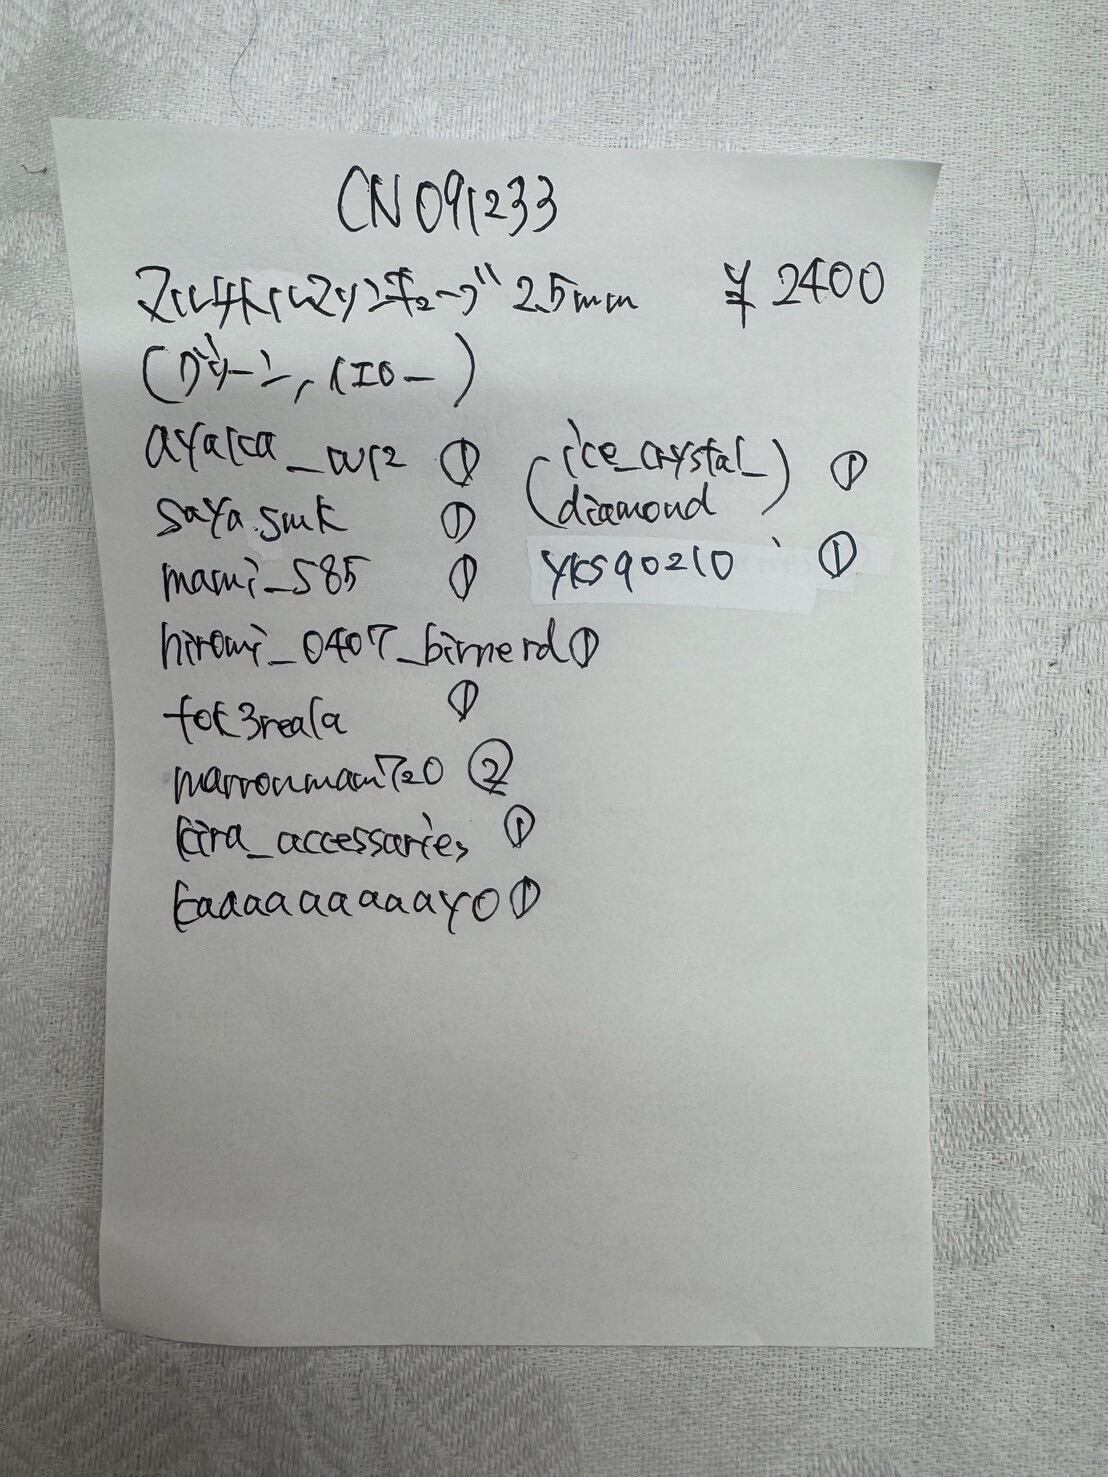 CN091233
マルチトルマリンチューブ 2.5mm ¥2400
(グリーン, イエロー)
ayaka_wr2 ①
saya.smk ①
mami_585 ①
hiromi_0407_birnerd ①
fot3reala ①
marronmam720 ②
kira_accessaries ①
kaaaaaaaaayo ①
(ice_crystal_
diamond) ①
yks90210 ①